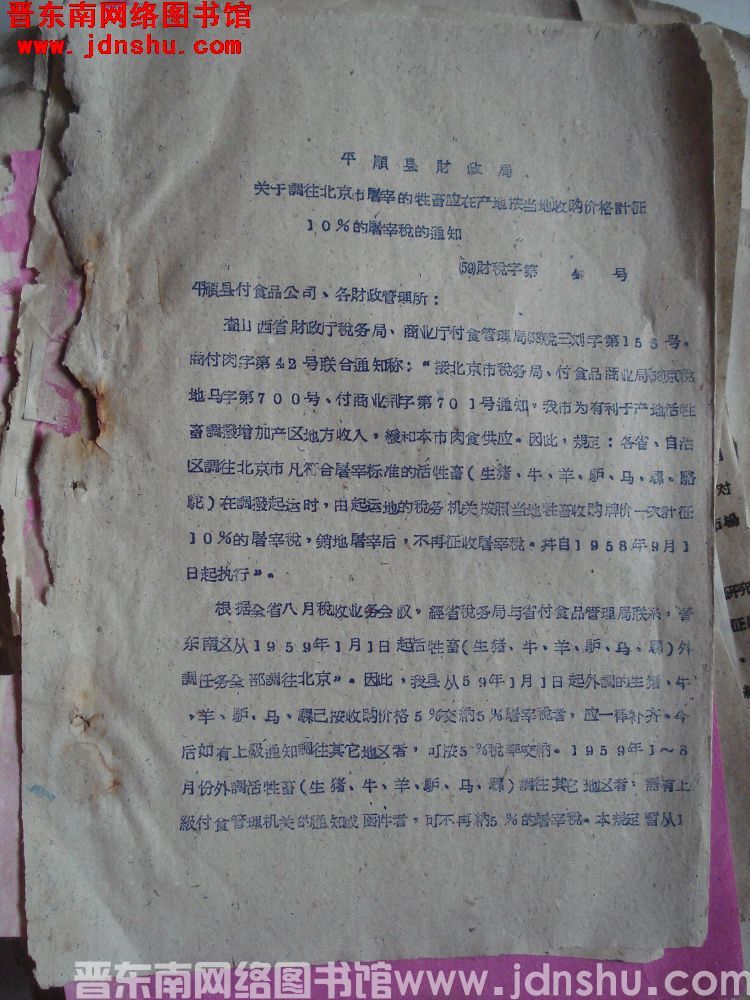 晋东南网络图书馆
www.jdnshu.com
平順县財政局
关于調往北京市屠宰的牲畜应在产地按当地收购价格計征
10%的屠宰税的通知
(59)財税字第 4 号
平順县付食品公司、各財政管理所：
查山西省財政厅税务局、商业厅付食管理局(58)税三刘字第153号、
商付肉字第42号联合通知称：“接北京市税务局、付食品商业局(58)京税
地马字第700号、付商业刑字第701号通知，我市为有利于产地活牲
畜調撥增加产区地方收入，緩和本市肉食供应。因此，規定：各省、自治
区調往北京市凡符合屠宰标准的活牲畜(生猪、牛、羊、驴、马、騾、駱
駝)在調撥起运时，由起运地的税务机关按照当地牲畜收购牌价一次計征
10%的屠宰税，銷地屠宰后，不再征收屠宰税。幷自1958年9月1
日起执行”。
根据全省八月税收业务会议，經省税务局与省付食品管理局联系，晋
东南区从1959年1月1日起活牲畜(生猪、牛、羊、驴、马、騾)外
調任务全部調往北京”。因此，我县从59年1月1日起外調的生猪、牛
、羊、驴、马、騾已按收购价格5%交納5%屠宰税者，应一律补齐。今
后如有上級通知調往其它地区者，可按5%税率交納。1959年1～8
月份外調活牲畜(生猪、牛、羊、驴、马、騾)調往其它地区者，需有上
級付食管理机关的通知或函件者，可不再納5%的屠宰税。本規定暫从1
对
市場
研究
征
晋东南网络图书馆www.jdnshu.com